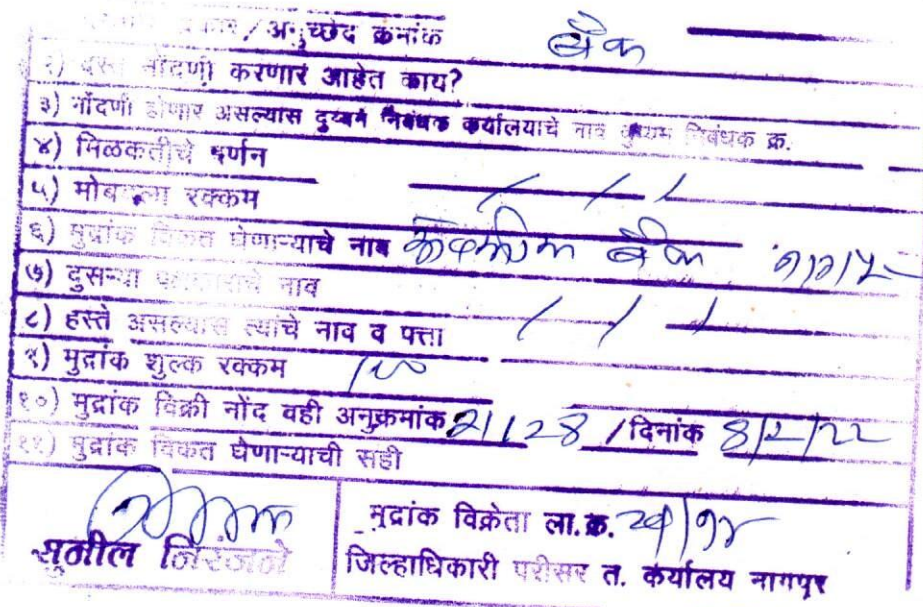 प्रकार / अनुच्छेद क्रमांक बँक
२) दस्त नोंदणी करणार आहेत काय?
३) नोंदणी होणार असल्यास दुय्यम निबंधक कर्यालयाचे नाव दुय्यम निबंधक क्र.
४) मिळकतीचे वर्णन
५) मोबदला रक्कम
६) मुद्रांक विकत घेणाऱ्याचे नाव बँक
७) दुसऱ्या पक्षकाराचे नाव
८) हस्ते असल्यास त्यांचे नाव व पत्ता
९) मुद्रांक शुल्क रक्कम
१०) मुद्रांक विक्री नोंद वही अनुक्रमांक / दिनांक
११) मुद्रांक विकत घेणाऱ्याची सही
मुद्रांक विक्रेता ला.क्र.
सुनील
जिल्हाधिकारी परीसर त. कर्यालय नागपूर